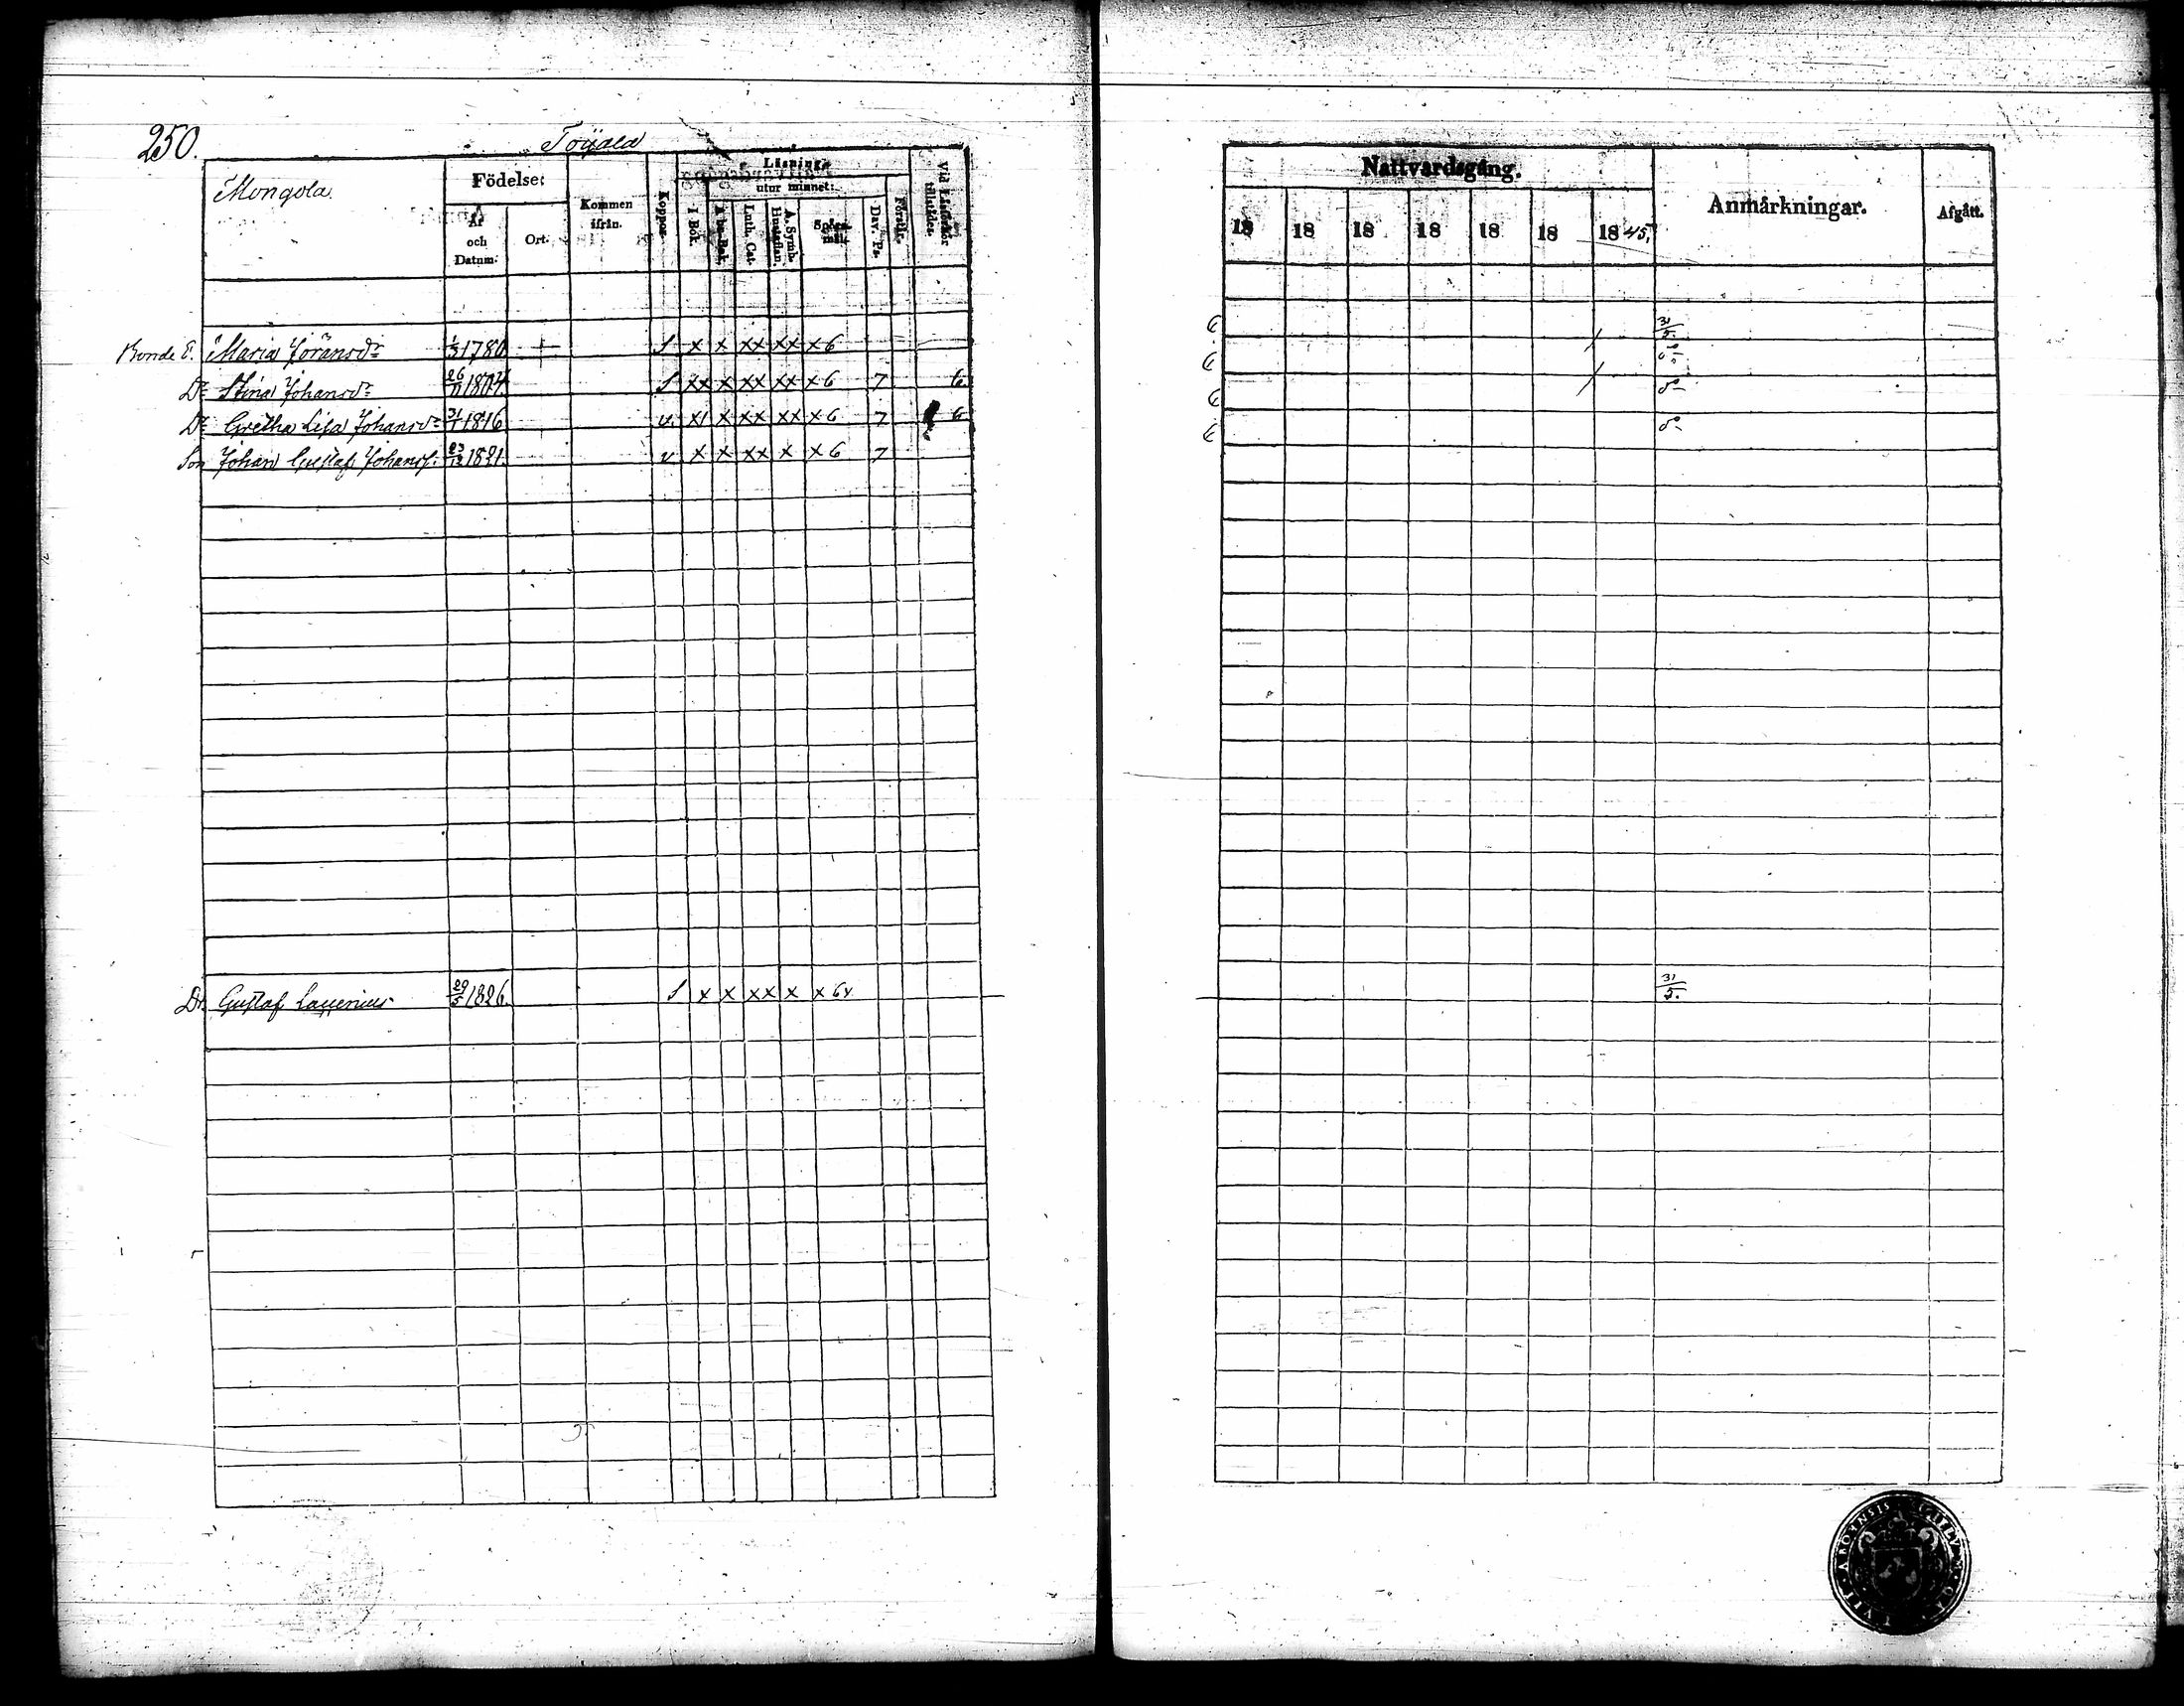 250. Töijala
Mongola.
Födelse:
År och Datum.
Ort.
Kommen ifrån.
Koppor.
Läsning:
utur minnet:
I Bok.
A be Bok.
Luth. Cat.
A. Symb. Hustaflan.
Spörsmål.
Dav. Ps.
Förstår.
Vid Läseförhör tillstädes.
Bonde E. Maria Jöransdr 1/3 1780 + s x x xx xx x 6
Dr Stina Johansdr 26/11 1804. s xx x xx xx x 6 7 6
Dr Gretha Lisa Johansdr 31/1 1816 v. x1 x xx xx x 6 7 6
Son Johan Gustaf Johanss: 23/12 1821. v x x xx x x 6 7
Dr. Gustaf 29/5 1826. s x x xx x x 6x
Nattvardsgång.
18 18 18 18 18 18 1845,
Anmärkningar.
Afgått.
6 / 31/5.
6 / do
6 do
6 do
31/5.